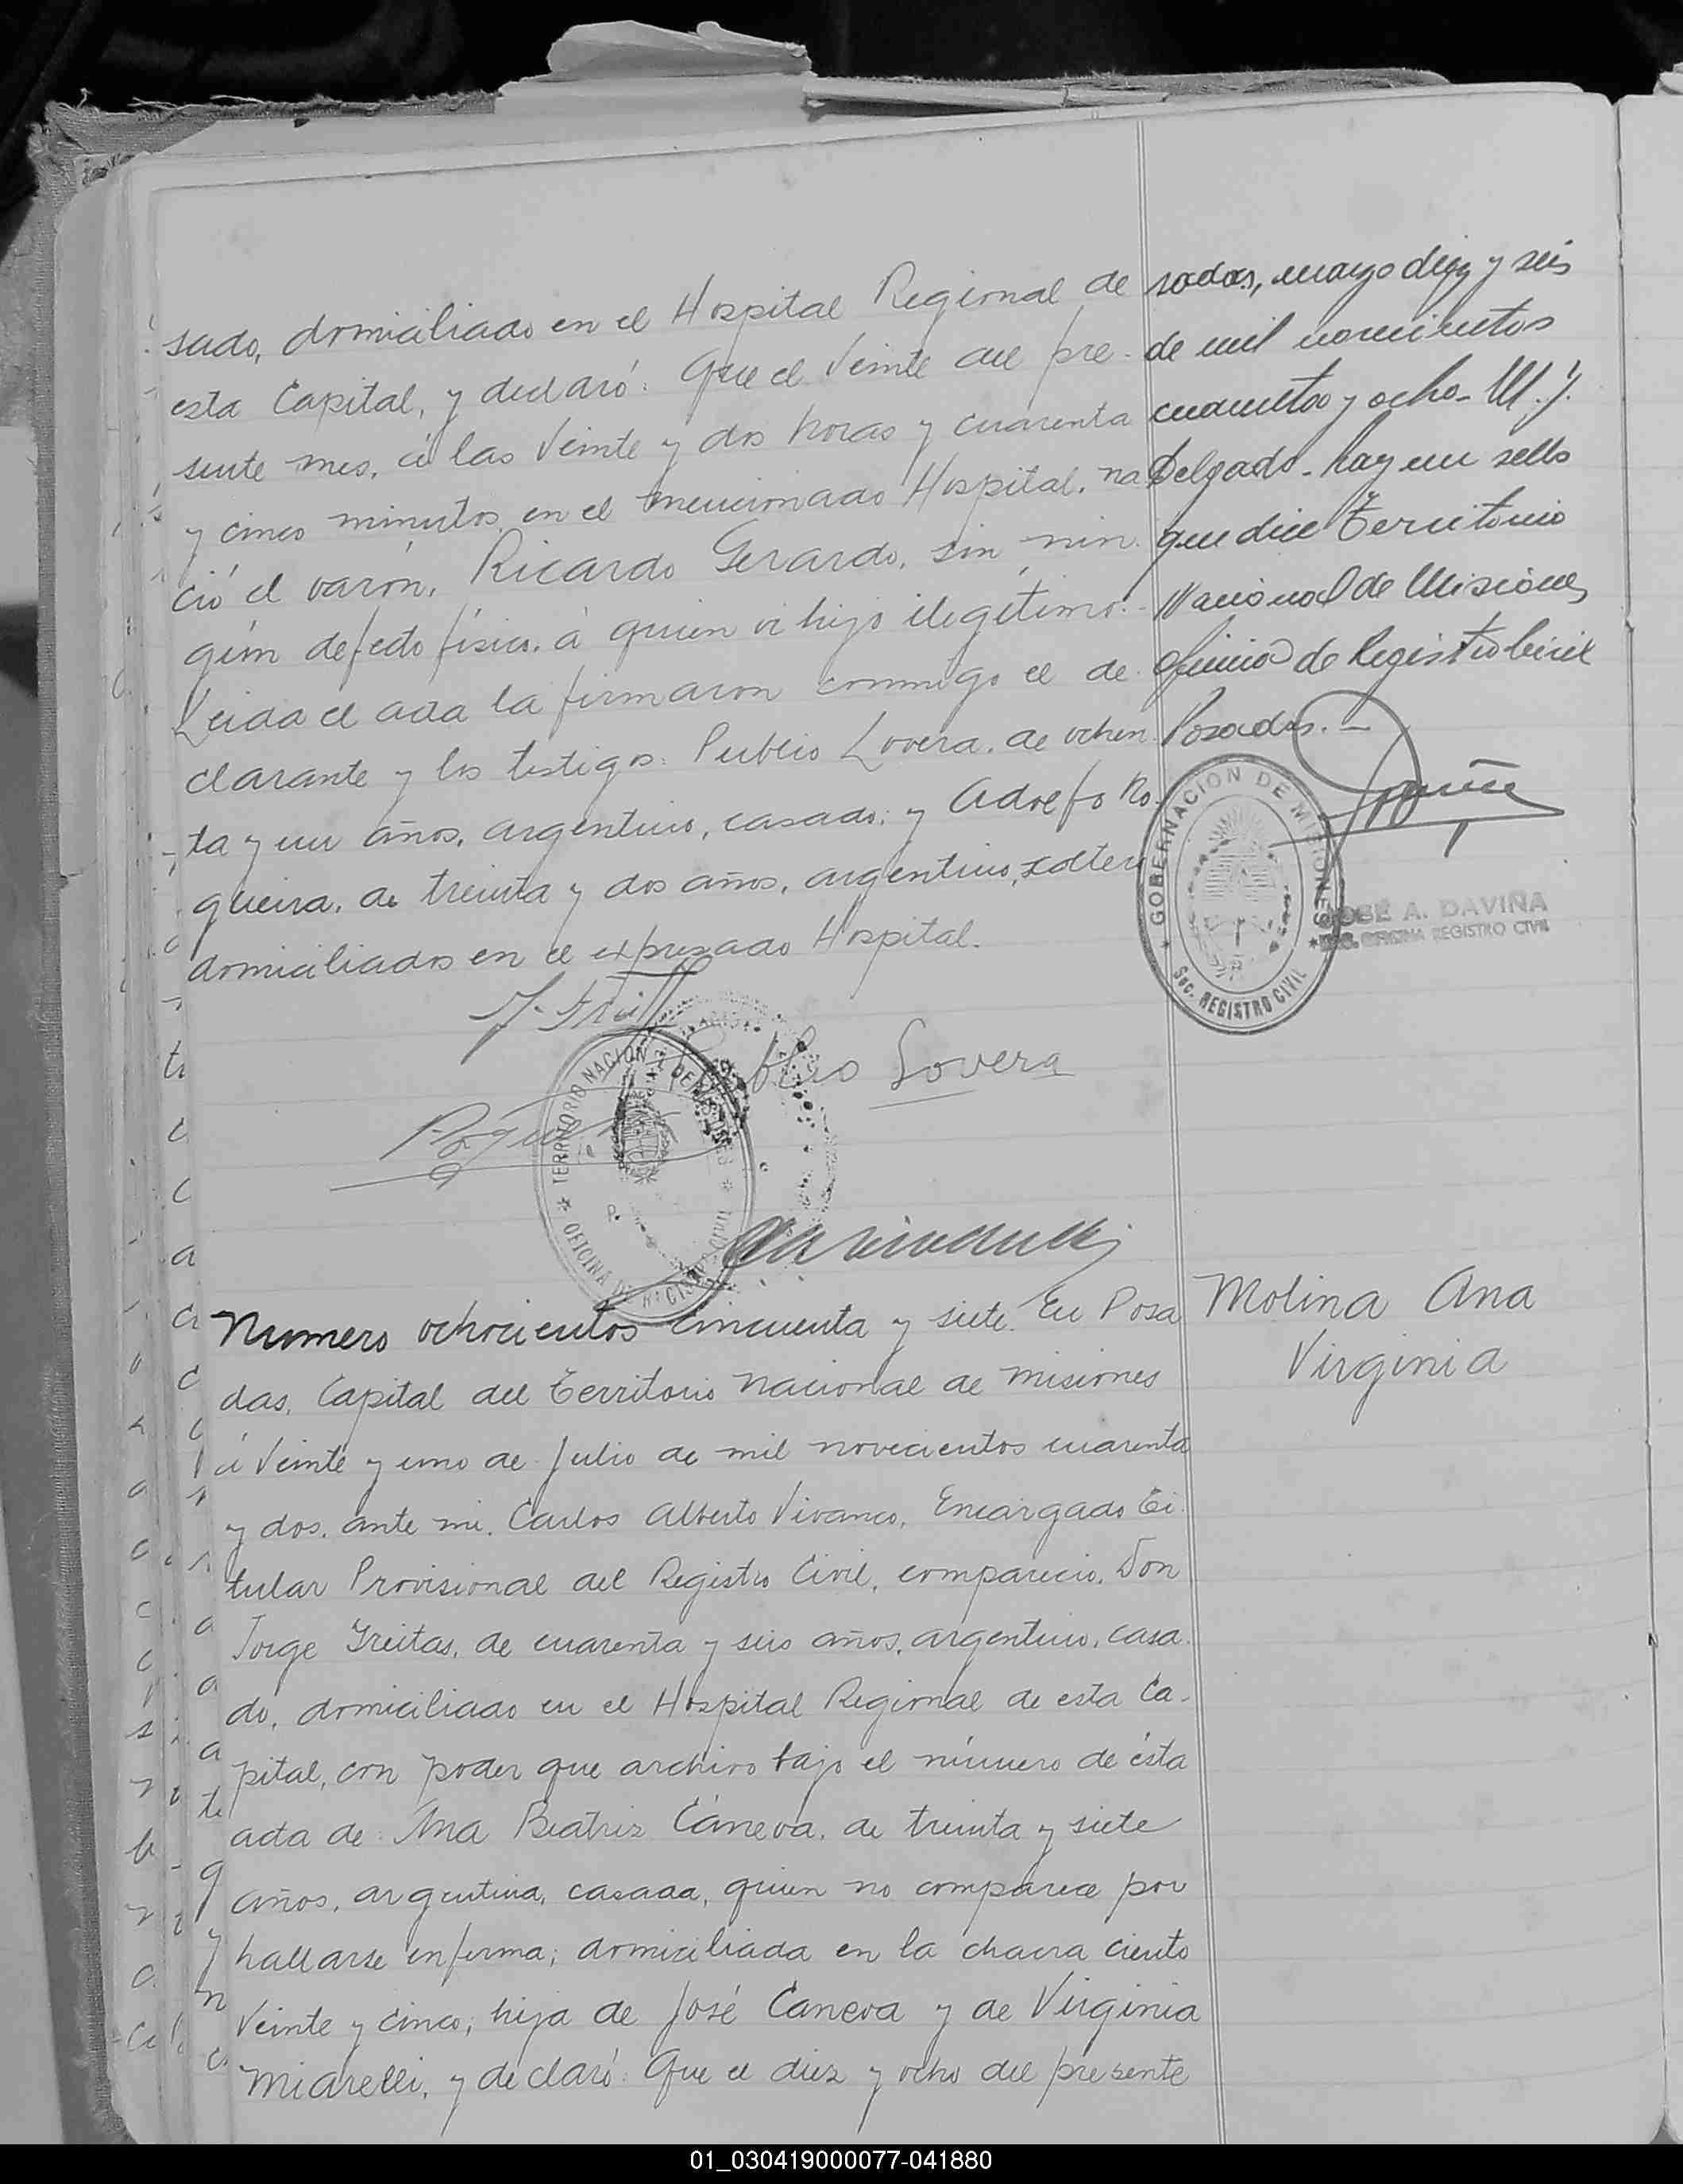 sado, domiciliado en el Hospital Regional de
esta Capital, y declaró: Que el Veinte del pre-
sente mes, á las Veinte y dos horas y cuarenta
y cinco minutos, en el mencionado Hospital, na
ció el varón, Ricardo Gerardo, sin nin-
gún defecto físico, á quien vi hijo ilegítimo.-
Leida el acta la firmaron conmigo el de-
clarante y los testigos: Publio Lovera, de ochen-
ta y un años, argentino, casado; y Adolfo No-
gueira, de treinta y dos años, argentino, soltero
domiciliados en el expresado Hospital.
Publio Lovera
TERRITORIO NACIONAL DE MISIONES
OFICINA DE REGISTRO CIVIL
sadas, mayo diez y seis
de mil novecientos
cuarenta y ocho- M. J.
Delgado- hay un sello
que dice Territorio
Nacional de Misiones
Oficina de Registro Civil
Posadas.-
GOBERNACION DE MISIONES
Sec. REGISTRO CIVIL
JOSÉ A. DAVIÑA
ENC. OFICINA REGISTRO CIVIL
Numero ochocientos cincuenta y siete. En Posa
das, Capital del Territorio Nacional de Misiones
á Veinte y uno de Julio de mil novecientos cuarenta
y dos, ante mi, Carlos Alberto Vivanco, Encargado Ti-
tular Provisional del Registro Civil, compareció, Don
Jorge Freitas, de cuarenta y seis años, argentino, casa-
do, domiciliado en el Hospital Regional de esta Ca-
pital, con poder que archivo bajo el número de ésta
acta de: Ana Beatriz Cáneva, de treinta y siete
años, argentina, casada, quien no comparece por
hallarse enferma; domiciliada en la chacra ciento
Veinte y cinco; hija de José Caneva y de Virginia
Miarelli, y declaró: Que el diez y ocho del presente
Molina Ana
Virginia
01_030419000077-041880